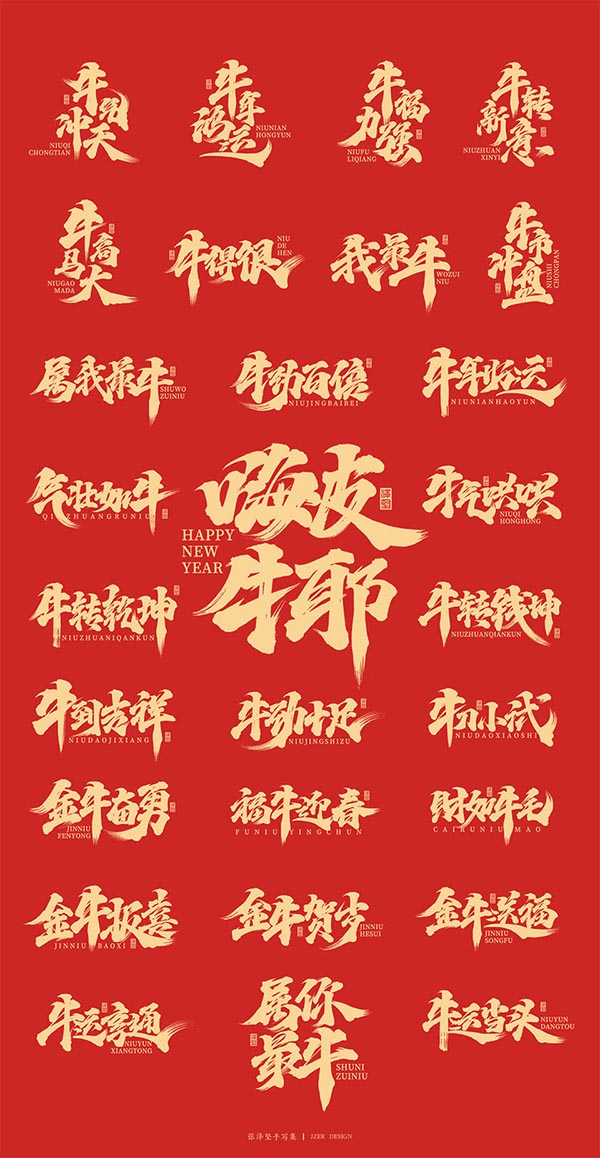 牛羽冲天
NIUQI
CHONGTIAN
牛年鸿运
NIUNIAN
HONGYUN
牛福力强
NIUFU
LIQIANG
牛转新意
NIUZHUAN
XINYI
牛高马大
NIUGAO
MADA
牛得很
NIU
DE
HEN
我最牛
WOZUI
NIU
牛市冲盘
NIUSHI
CHONGPAN
属我最牛
SHUWO
ZUINIU
牛劲百倍
NIUJINGBAIREI
牛年好运
NIUNIANHAOYUN
气壮如牛
QIZHUANGRUNIU
嗨皮
牛耶
HAPPY
NEW
YEAR
牛气哄哄
NIUQI
HONGHONG
牛转乾坤
NIUZHUANQIANKUN
牛转钱坤
NIUZHUANQIANKUN
牛到吉祥
NIUDAOJIXIANG
牛劲十足
NIUJINGSHIZU
牛刀小试
NIUDAOXIAOSHI
金牛奋勇
JINNIU
FENYONG
福牛迎春
FUNIUYINGCHUN
财如牛毛
CAIRUNIUMAO
金牛报喜
JINNIUBAOXI
金牛贺岁
JINNIU
HESUI
金牛送福
JINNIU
SONGFU
牛运亨通
NIUYUN
XIANGTONG
属你
最牛
SHUNI
ZUINIU
牛运当头
NIUYUN
DANGTOU
张泽坚手写集 | IZER DESIGN